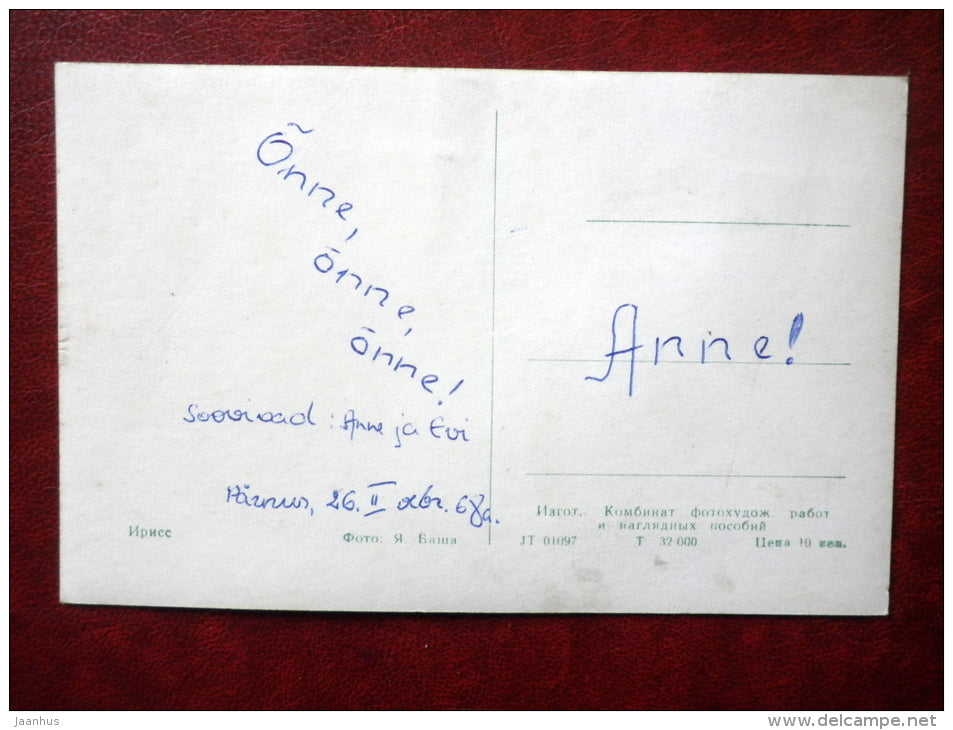 Õnne,
õnne,
õnne!
Soovivad: Anne ja Evi
Pärnus, 26. II 68a.
Anne!
Ирисс
Фото: Я. Баша
Изгот. Комбинат фотохудож. работ
и наглядных пособий
JT 01097 Т 32 000 Цена 10 коп.
Jaanhus
www.delcampe.net